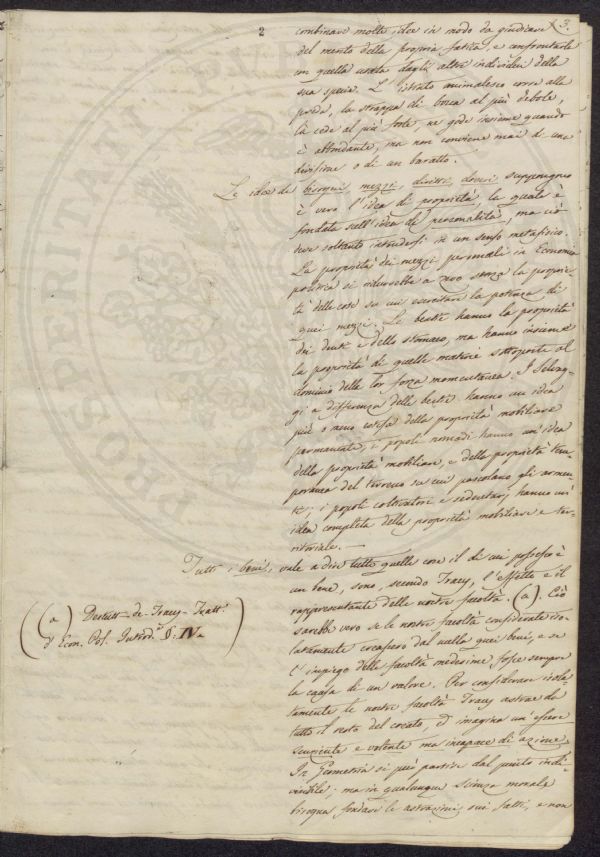 2
3.
combinare molte idee in modo da giudicare
del merito della propria fatica, e confrontarla
con quella usata dagli altri individui della
sua specie. L'istinto animalesco corre alla
preda, la strappa di bocca al più debole,
la cede al più forte, ne gode insieme quando
è abbondante, ma non conviene mai di una
divisione o di un baratto.
Le idee di bisogni, mezzi, diritti, doveri suppongono
è vero l'idea di proprietà, la quale è
fondata sull'idea di personalità, ma ciò
deve soltanto intendersi in un senso metafisico.
La proprietà dei mezzi personali in Economia
politica si ridurrebbe a zero senza la proprie-
tà delle cose su cui esercitare la potenza di
quei mezzi. Le bestie hanno la proprietà
dei denti e dello stomaco, ma hanno insieme
la proprietà di quelle materie sottoposte al
dominio della lor forza momentanea. I Selvag-
gi a differenza delle bestie hanno un'idea
più o meno estesa della proprietà mobiliare
permanente, i popoli nomadi hanno un'idea
della proprietà mobiliare, e della proprietà tem-
poranea del terreno su cui pascolano gli armen-
ti, i popoli coltivatori e sedentarj hanno un'
idea completa della proprietà mobiliare e ter-
ritoriale.
Tutti i beni, vale a dire tutte quelle cose il di cui possesso è
un bene, sono, secondo Tracy, l'effetto e il
rappresentante delle nostre facoltà. (a). Ciò
sarebbe vero se le nostre facoltà considerate iso-
latamente creassero dal nulla quei beni, e se
l'impiego delle facoltà medesime fosse sempre
la causa di un valore. Per considerare isola-
tamente le nostre facoltà Tracy astrae da
tutto il resto del creato, ed imagina un'essere
senziente e volente ma incapace di azione.
In Geometria si può partire dal punto indi-
visibile; ma in qualunque scienza morale
bisogna fondare le astrazioni sui fatti, e non
(a) Destutt-de-Tracy-Tratt.
d'Econ. Pol. Introd. §. IV.
PROSPERITATI